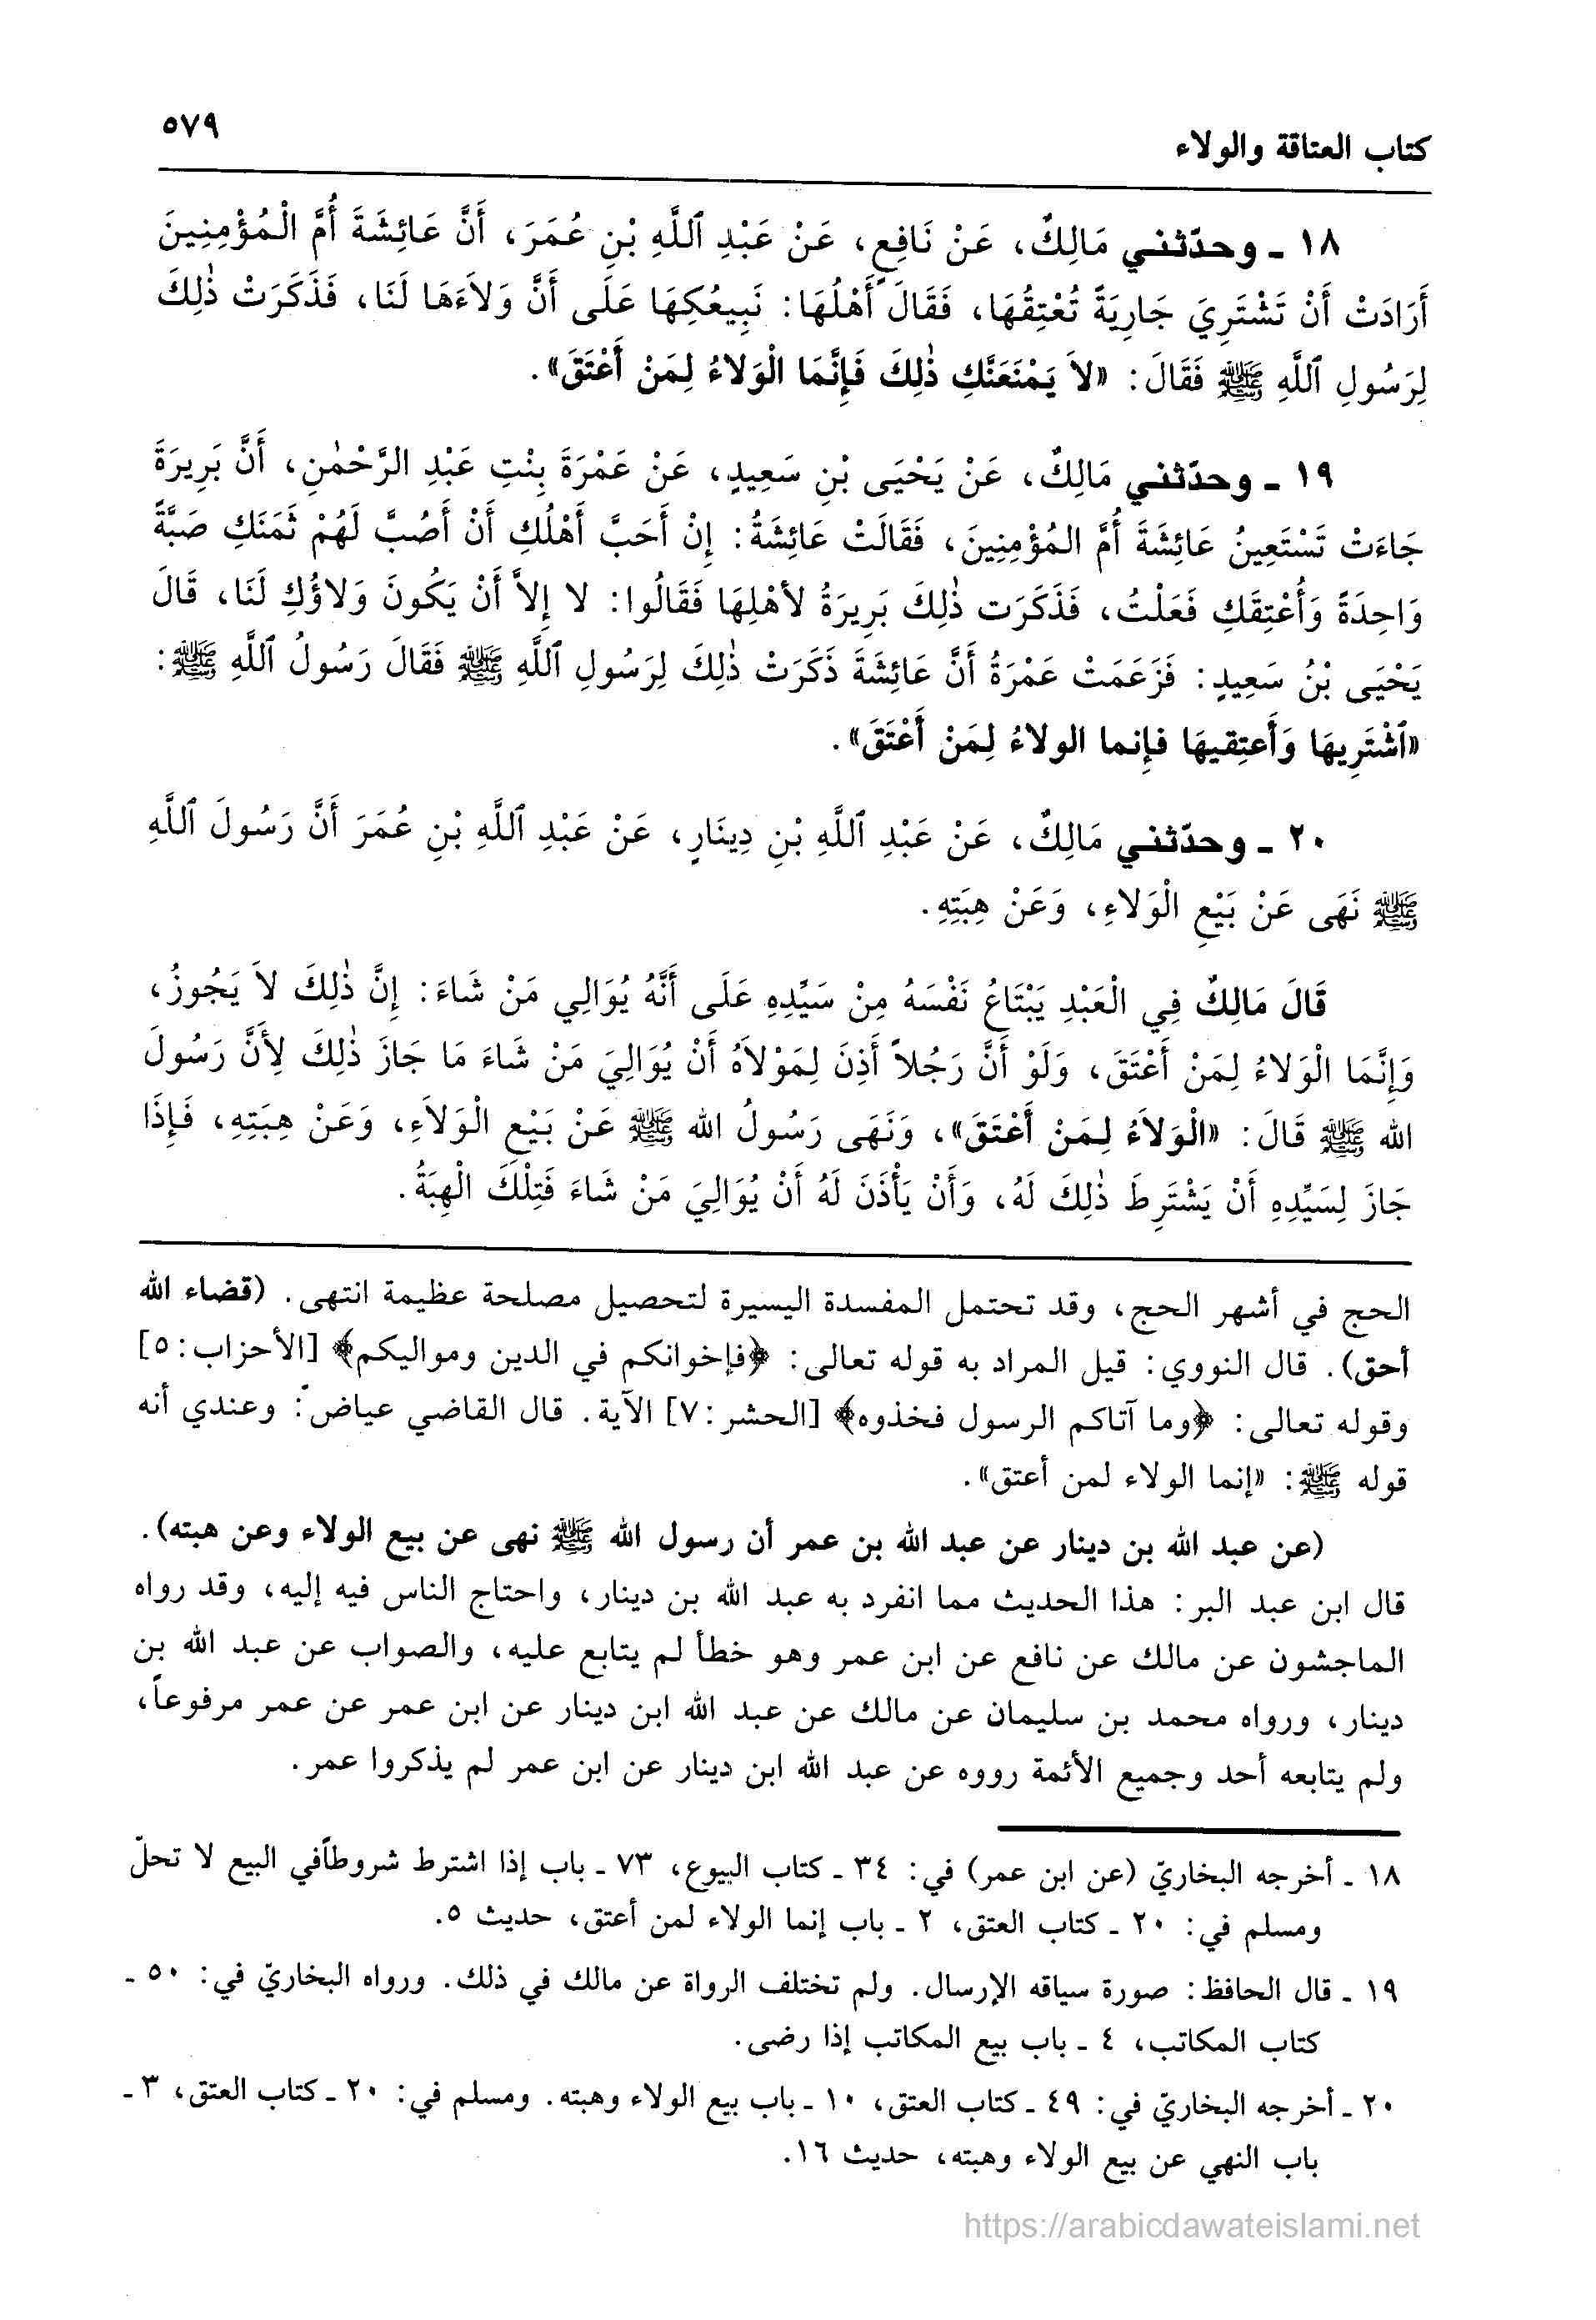 كتاب العتاقة والولاء
٥٧٩
١٨ ـ وحدّثني مَالِكٌ، عَنْ نَافِعٍ، عَنْ عَبْدِ ٱللَّهِ بْنِ عُمَرَ، أَنَّ عَائِشَةَ أُمَّ الْمُؤْمِنِينَ
أَرَادَتْ أَنْ تَشْتَرِيَ جَارِيَةً تُعْتِقُهَا، فَقَالَ أَهْلُهَا: نَبِيعُكِهَا عَلَى أَنَّ وَلاَءَهَا لَنَا، فَذَكَرَتْ ذٰلِكَ
لِرَسُولِ ٱللَّهِ ﷺ فَقَالَ: «لاَ يَمْنَعَنَّكِ ذٰلِكَ فَإِنَّمَا الْوَلاءُ لِمَنْ أَعْتَقَ».
١٩ ـ وحدّثني مَالِكٌ، عَنْ يَحْيَى بْنِ سَعِيدٍ، عَنْ عَمْرَةَ بِنْتِ عَبْدِ الرَّحْمٰنِ، أَنَّ بَرِيرَةَ
جَاءَتْ تَسْتَعِينُ عَائِشَةَ أُمَّ المُؤْمِنِينَ، فَقَالَتْ عَائِشَةُ: إِنْ أَحَبَّ أَهْلُكِ أَنْ أَصُبَّ لَهُمْ ثَمَنَكِ صَبَّةً
وَاحِدَةً وَأُعْتِقَكِ فَعَلْتُ، فَذَكَرَت ذٰلِكَ بَرِيرَةُ لأهْلِهَا فَقَالُوا: لا إِلاَّ أَنْ يَكُونَ وَلاؤُكِ لَنَا، قَالَ
يَحْيَى بْنُ سَعِيدٍ: فَزَعَمَتْ عَمْرَةُ أَنَّ عَائِشَةَ ذَكَرَتْ ذٰلِكَ لِرَسُولِ ٱللَّهِ ﷺ فَقَالَ رَسُولُ ٱللَّهِ ﷺ:
«ٱشْتَرِيهَا وَأَعتِقيهَا فإِنما الولاءُ لِمَنْ أَعْتَقَ».
٢٠ ـ وحدّثني مَالِكٌ، عَنْ عَبْدِ ٱللَّهِ بْنِ دِينَارٍ، عَنْ عَبْدِ ٱللَّهِ بْنِ عُمَرَ أَنَّ رَسُولَ ٱللَّهِ
ﷺ نَهَى عَنْ بَيْعِ الْوَلاءِ، وَعَنْ هِبَتِهِ.
قَالَ مَالِكٌ فِي الْعَبْدِ يَبْتَاعُ نَفْسَهُ مِنْ سَيِّدِهِ عَلَى أَنَّهُ يُوَالِي مَنْ شَاءَ: إِنَّ ذٰلِكَ لاَ يَجُوزُ،
وَإِنَّمَا الْوَلاءُ لِمَنْ أَعْتَقَ، وَلَوْ أَنَّ رَجُلاً أَذِنَ لِمَوْلاَهُ أَنْ يُوَالِيَ مَنْ شَاءَ مَا جَازَ ذٰلِكَ لِأَنَّ رَسُولَ
الله ﷺ قَالَ: «الْوَلاَءُ لِمَنْ أَعْتَقَ»، وَنَهَى رَسُولُ الله ﷺ عَنْ بَيْعِ الْوَلاَءِ، وَعَنْ هِبَتِهِ، فَإِذَا
جَازَ لِسَيِّدِهِ أَنْ يَشْتَرِطَ ذٰلِكَ لَهُ، وَأَنْ يَأْذَنَ لَهُ أَنْ يُوَالِيَ مَنْ شَاءَ فَتِلْكَ الْهِبَةُ.
الحج في أشهر الحج، وقد تحتمل المفسدة اليسيرة لتحصيل مصلحة عظيمة انتهى. (قضاء الله
أحق). قال النووي: قيل المراد به قوله تعالى: ﴿فإخوانكم في الدين ومواليكم﴾ [الأحزاب: ٥]
وقوله تعالى: ﴿وما آتاكم الرسول فخذوه﴾ [الحشر: ٧] الآية. قال القاضي عياض: وعندي أنه
قوله ﷺ: «إنما الولاء لمن أعتق».
(عن عبد الله بن دينار عن عبد الله بن عمر أن رسول الله ﷺ نهى عن بيع الولاء وعن هبته).
قال ابن عبد البر: هذا الحديث مما انفرد به عبد الله بن دينار، واحتاج الناس فيه إليه، وقد رواه
الماجشون عن مالك عن نافع عن ابن عمر وهو خطأ لم يتابع عليه، والصواب عن عبد الله بن
دينار، ورواه محمد بن سليمان عن مالك عن عبد الله ابن دينار عن ابن عمر عن عمر مرفوعاً،
ولم يتابعه أحد وجميع الأئمة رووه عن عبد الله ابن دينار عن ابن عمر لم يذكروا عمر.
١٨ ـ أخرجه البخاريّ (عن ابن عمر) في: ٣٤ ـ كتاب البيوع، ٧٣ ـ باب إذا اشترط شروطاًفي البيع لا تحلّ
ومسلم في: ٢٠ ـ كتاب العتق، ٢ ـ باب إنما الولاء لمن أعتق، حديث ٥.
١٩ ـ قال الحافظ: صورة سياقه الإرسال. ولم تختلف الرواة عن مالك في ذلك. ورواه البخاريّ في: ٥٠ ـ
كتاب المكاتب، ٤ ـ باب بيع المكاتب إذا رضى.
٢٠ ـ أخرجه البخاريّ في: ٤٩ ـ كتاب العتق، ١٠ ـ باب بيع الولاء وهبته. ومسلم في: ٢٠ ـ كتاب العتق، ٣ ـ
باب النهي عن بيع الولاء وهبته، حديث ١٦.
https://arabicdawateislami.net